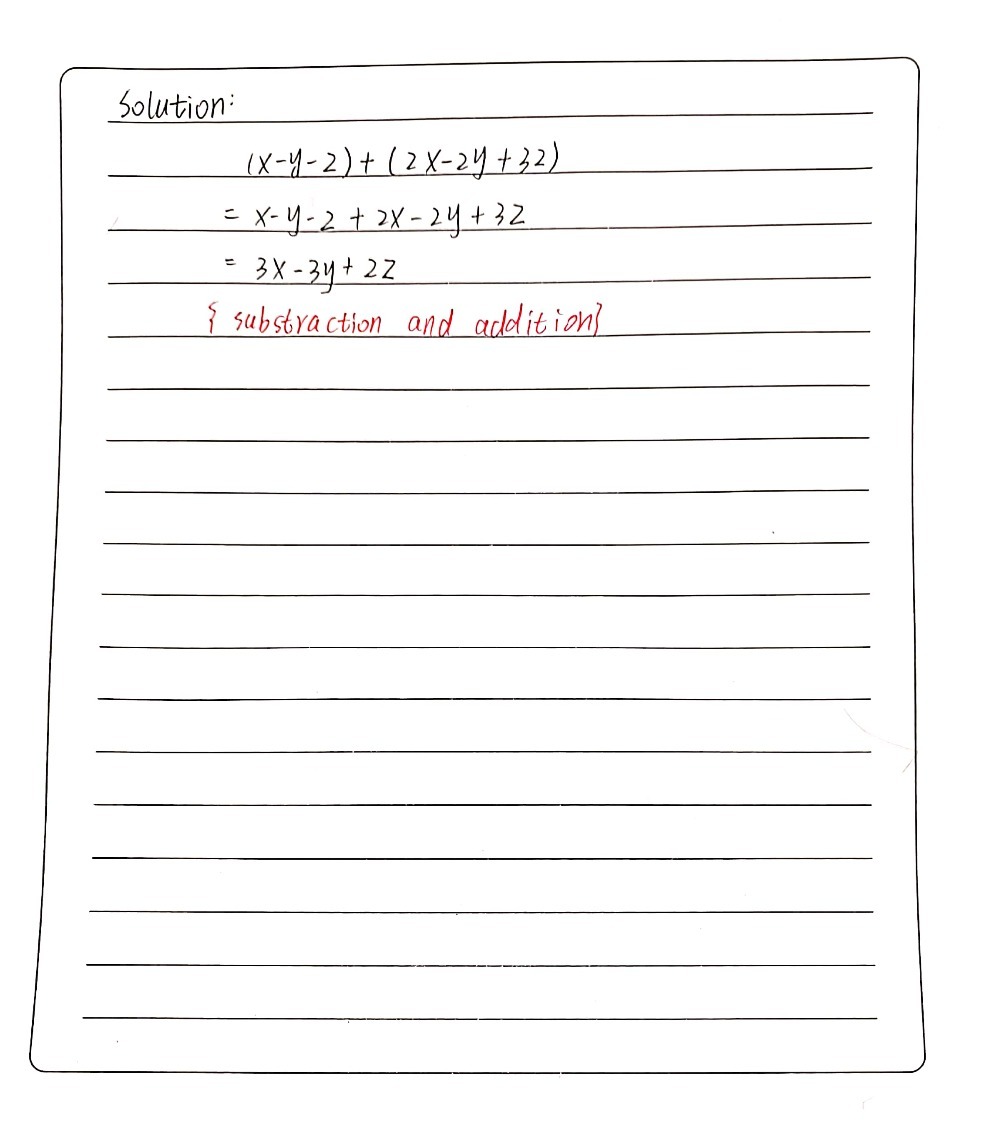 Solution:
(x-y-z)+(2x-2y+3z)
= x-y-z+2x-2y+3z
= 3x-3y+2z
{substraction and addition}